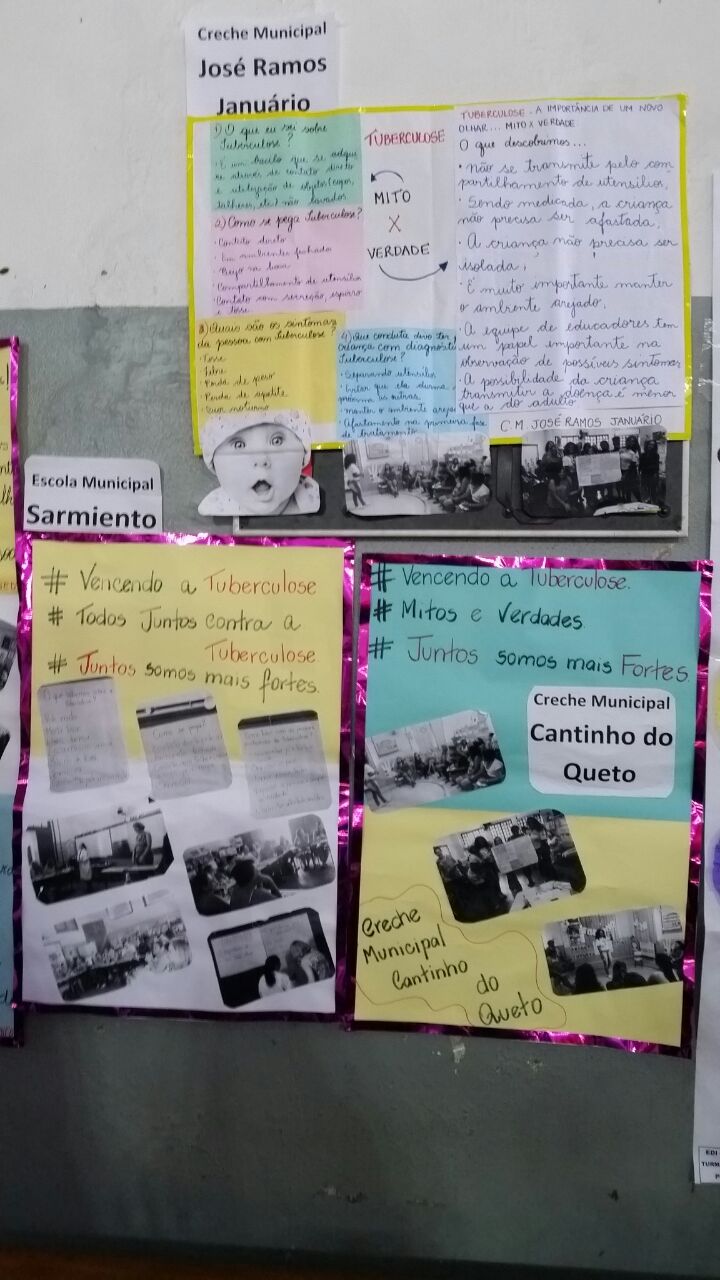 Creche Municipal
José Ramos
Januário
1) O que eu sei sobre
Tuberculose?
É um bacilo que se adqui
re através de contato direto
e utilização de objetos (copos,
talheres, etc) não lavados
2) Como se pega Tuberculose?
· Contato direto
· Em ambientes fechados
· Beijo na boca
· Compartilhamento de utensílios
· Contato com secreção, espirro
e tosse
3) Quais são os sintomas
da pessoa com Tuberculose?
· Tosse
· Febre
· Perda de peso
· Perda de apetite
· Suor noturno
TUBERCULOSE
MITO
X
VERDADE
4) Que conduta devo ter
criança com diagnósti
Tuberculose?
· Separando utensílios
· Evitar que ela durma
próxima às outras.
· manter o ambiente areja
· Afastamento na primeira fase
de tratamento
TUBERCULOSE - A IMPORTÂNCIA DE UM NOVO
OLHAR... MITO X VERDADE
O que descobrimos...
· Não se transmite pelo com
partilhamento de utensílios;
· Sendo medicada, a criança
não precisa ser afastada;
· A criança não precisa ser
isolada;
· É muito importante manter
o ambiente arejado;
· A equipe de educadores tem
um papel importante na
observação de possíveis sintomas
· A possibilidade da criança
transmitir a doença é menor
que a do adulto
C.M. JOSÉ RAMOS JANUÁRIO
Escola Municipal
Sarmiento
# Vencendo a Tuberculose
# Todos Juntos contra a
Tuberculose.
# Juntos somos mais fortes.
Como se pega?
# Vencendo a Tuberculose.
# Mitos e Verdades.
# Juntos somos mais Fortes.
Creche Municipal
Cantinho do
Queto
Creche
Municipal
Cantinho
do
Queto
EDI
TURM